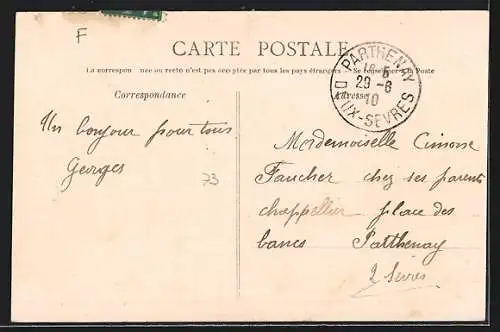 F
CARTE POSTALE
La correspondance au recto n'est pas acceptée par tous les pays étrangers — Se renseigner à la Poste
Correspondance
Adresse
PARTHENAY
18 - 5
29 - 6
10
DEUX-SEVRES
Un bonjour pour tous
Georges
73
Mordemoiselle Cimone
Faucher chez ses parents
chappellier place des
bancs Parthenay
2 Sèvres